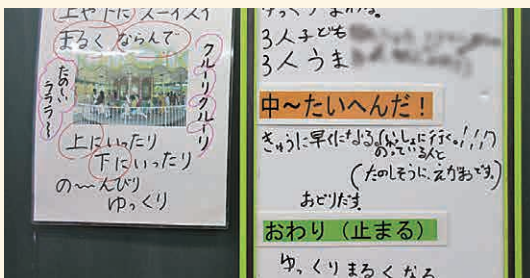 上や下に スーイスイ
まるく ならんで
クルーリクルーリ
たのーい
ラララ〜
上にいったり
下にいったり
の〜んびり
ゆっくり
ゆっくり まわる。
3人子ども
3人うま
中〜たいへんだ！
きゅうに早くになる
のっている人と
(たのしそうに、えがおです。)
おどりだす
おわり（止まる）
ゆっくりまるくなる